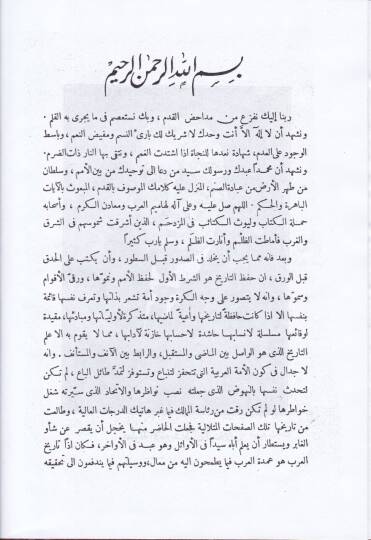 بسم الله الرحمن الرحيم
ربنا إليك نفزع من مداحض القدم ، وبك نستعصم فى ما يجرى به القلم .
ونشهد أن لا إله إلا أنت وحدك لا شريك لك بارئ النسم ومفيض النعم ، وباسط
الوجود على العدم، شهادة نعدها للنجاة اذا اشتدت الغمم ، ونتقى بها النار ذات الضرم.
ونشهد أن محمداً عبدك ورسولك سيد من دعا الى توحيدك من بين الأمم ، وسلطان
من طهر الأرض من عبادة الصنم، المنزل عليه كلامك الموصوف بالقدم ، المبعوث بالآيات
الباهرة والحكم - اللهم صل عليه وعلى آله لهاميم العرب ومعادن الكرم ، وأصحابه
حملة الكتاب وليوث الكتائب فى المزدحم ، الذين أشرقت شموسهم فى الشرق
والغرب فأماطت الظُلَم وأنارت الظُلَم ، وسلم يارب كثيراً
وبعد فانه مما يجب أن يخلد فى الصدور قبل السطور ، وأن يكتب على الحدق
قبل الورق ، ان حفظ التاريخ هو الشرط الأول لحفظ الأمم ونموّها ، ورقى الأقوام
وسموّها ، وانه لا يتصور على وجه الكرة وجود أمة تشعر بذاتها وتعرف نفسها قائمة
بنفسها الا اذا كانت حافظة لتاريخها واعية لماضيها، متذكرة لأولياتها ومبادئها، مقيدة
لوقائعها مسلسلة لانسابها حاشدة لاحسابها خازنة لآدابها ، مما لا يقوم به الا علم
التاريخ الذى هو الواصل بين الماضى والمستقبل، والرابط بين الآنف والمستأنف . وانه
لا جدال فى كون الأمة العربية التى تتحفز لتنباع وتستوفز لتمد طائل الباع ، لم تكن
لتحدث نفسها بالنهوض الذى جعلته نصب نواظرها والاتحاد الذى سيّرته شغل
خواطرها لو لم تكن رقت من رئاسة الممالك فيما غبر هاتيك الدرجات العالية ، وطالعت
من تاريخها تلك الصفحات المتلالية فجعلت الحاضر منها يخجل أن يقصر عن شأو
الغابر ويستطار أن يعلم أباه سيداً فى الأوائل وهو عبد فى الأواخر، فكان اذاً تاريخ
العرب هو عمدة العرب فيما يطمحون اليه من معال، ووسيلتهم فيما يندفعون الى تحقيقه